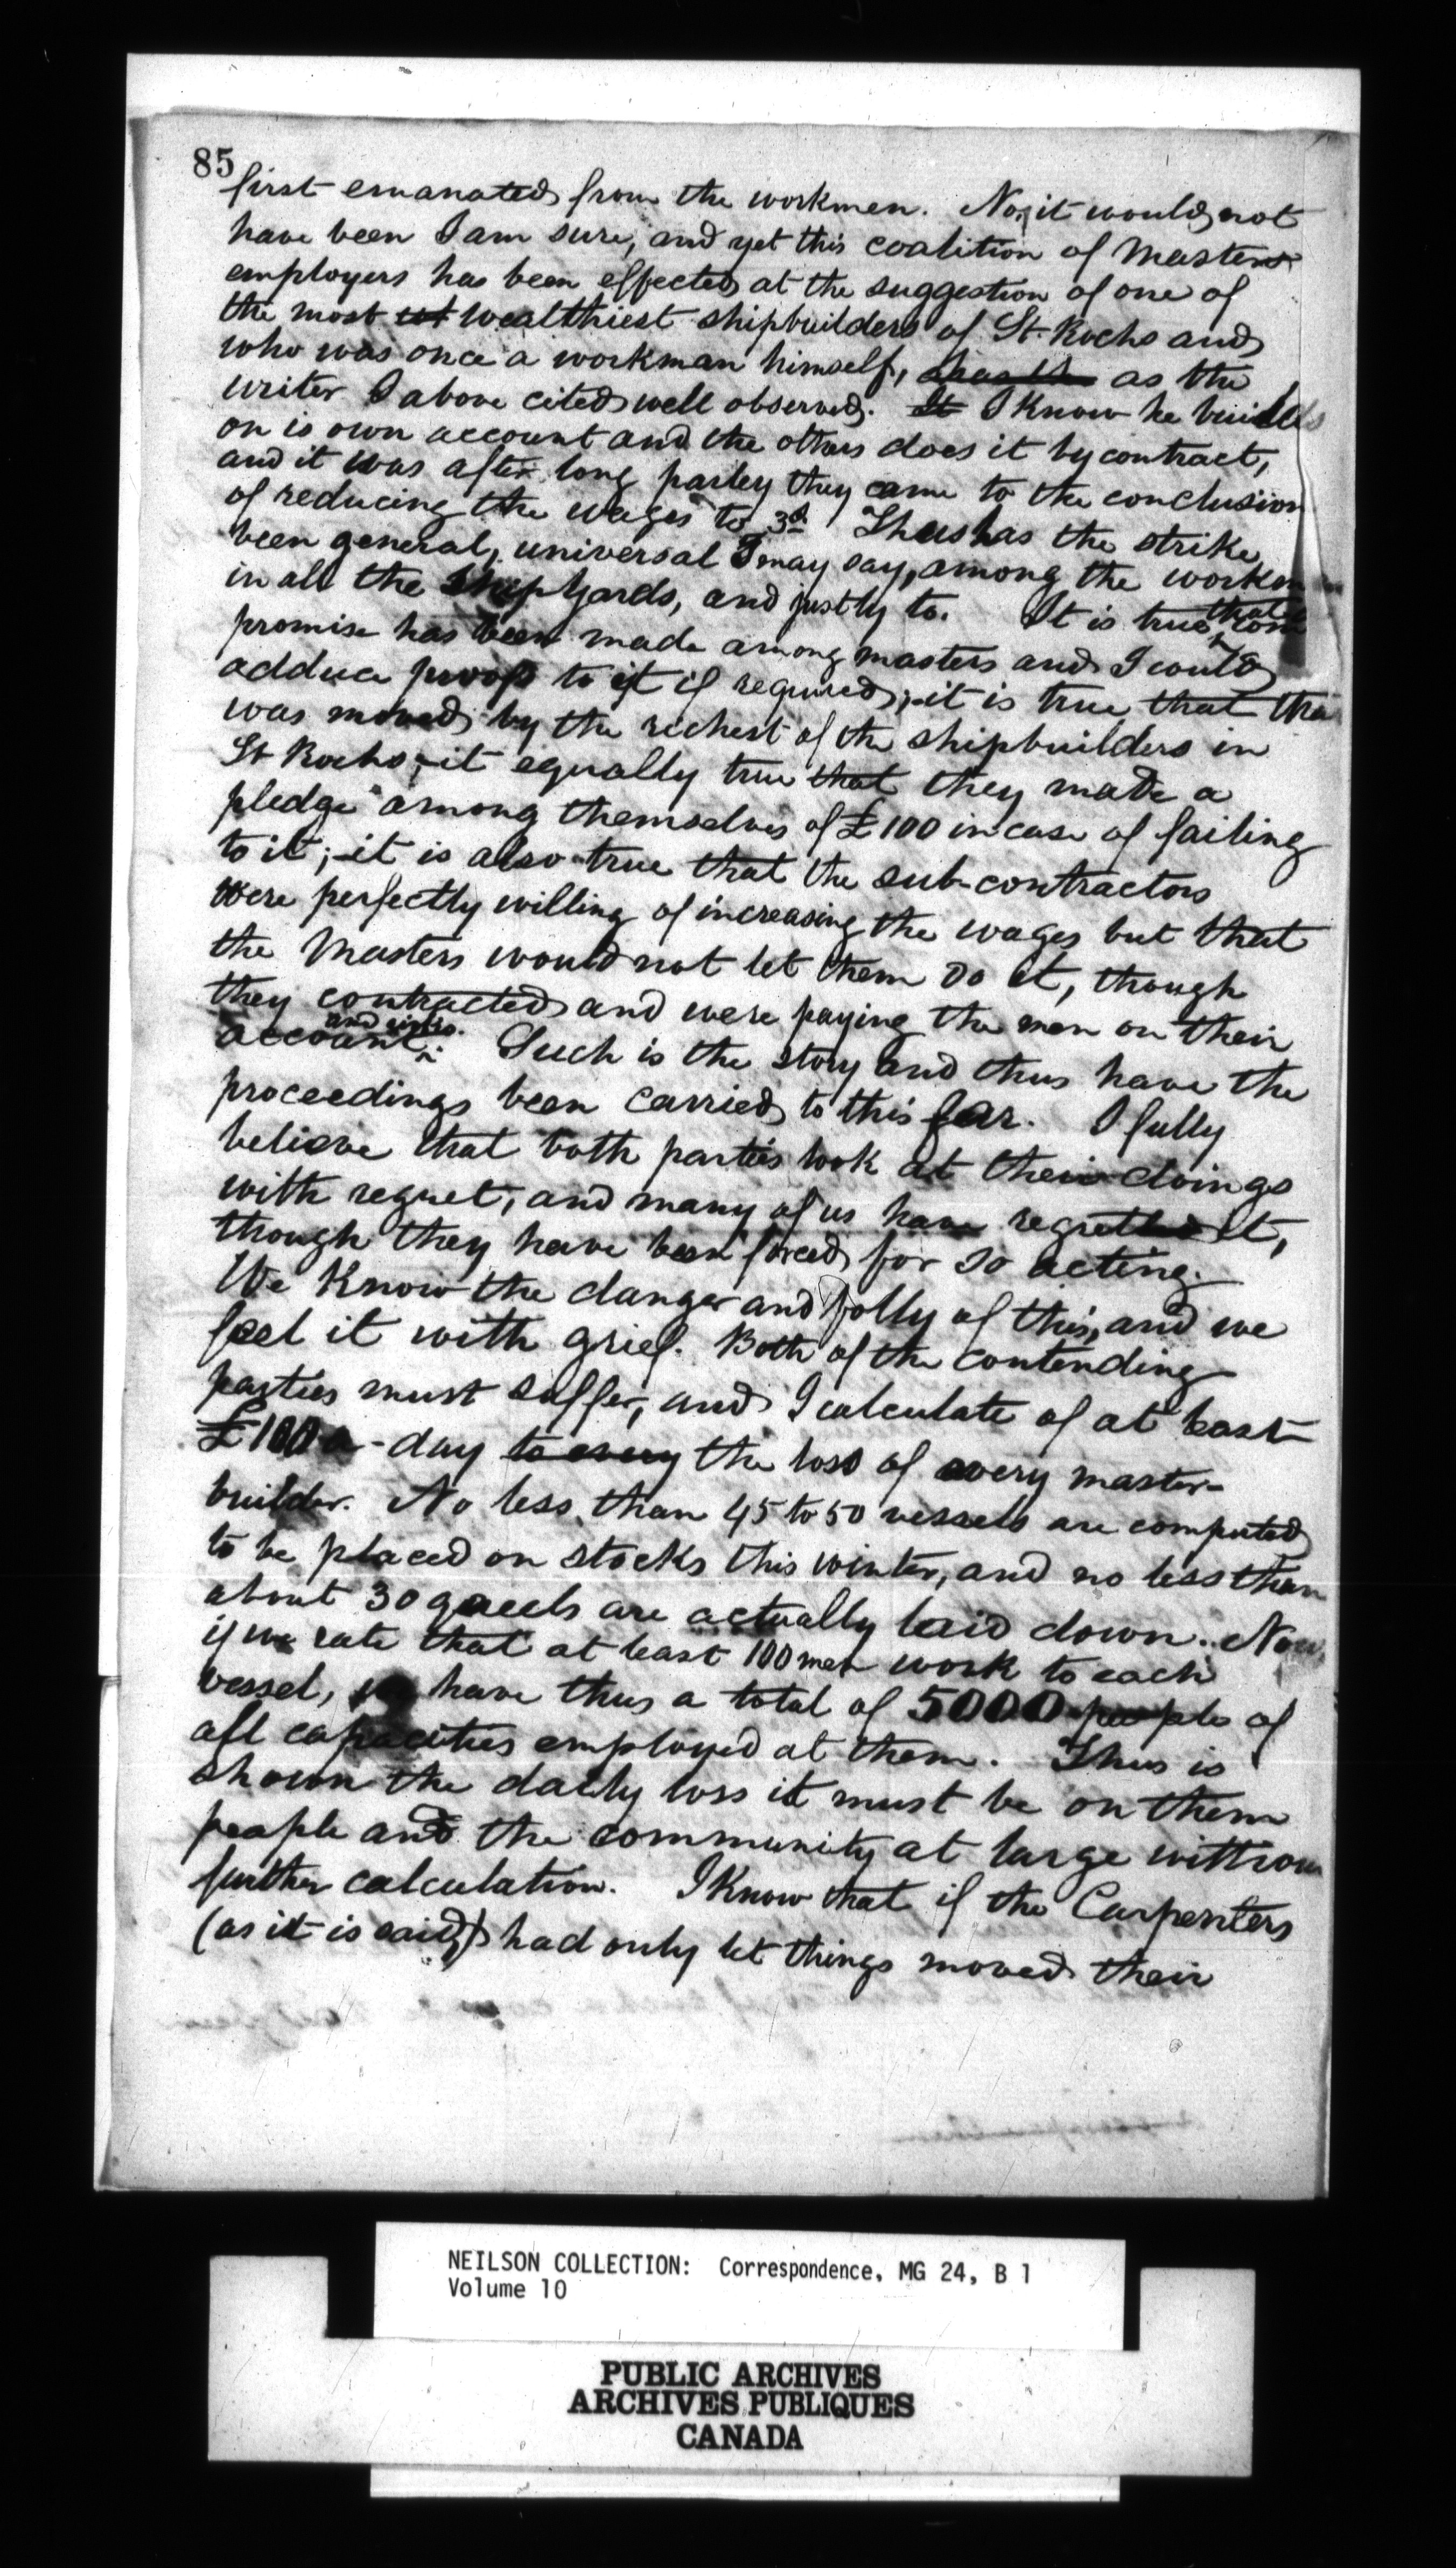 85
first emanated from the workmen. No, it would not
have been I am sure, and yet this coalition of Masters
employers has been effected at the suggestion of one of
the most wealthiest shipbuilders of St. Rochs and
who was once a workman himself, as the
writer I above cited well observed. It I know he builds
on is own account and the others does it by contract,
and it was after long parley they came to the conclusion
of reducing the wages to 3d. Thus has the strike
been general, universal I may say, among the workmen
in all the Ship Yards, and justly to. It is true that com
promise has been made among masters and I could
adduce proofs to it if required; it is true that tha
was moved by the richest of the shipbuilders in
St Rochs; it equally true that they made a
pledge among themselves of £100 in case of failing
to it; it is also true that the sub-contractors
were perfectly willing of increasing the wages but that
the Masters would not let them do it, though
they contracted and were paying the men on their
account Such is the story and thus have the
proceedings been carried to this far. I fully
believe that both parties look at their doings
with regret, and many of us have regretted it,
though they have been forced for so acting.
We Know the danger and folly of this, and we
feel it with grief. Both of the contending
parties must suffer, and I calculate of at least
£100 a-day to every the loss of every master-
builder. No less than 45 to 50 vessels are computed
to be placed on stocks this winter, and no less than
about 30 are actually laid down. Now,
if we rate that at least 100 men work to each
vessel, we have thus a total of 5000 people of
all capacities employed at them. Thus is
shown the daily loss it must be on them
people and the community at large without
further calculation. I Know that if the Carpenters
(as it is said) had only let things moved their
NEILSON COLLECTION: Correspondence, MG 24, B 1
Volume 10
PUBLIC ARCHIVES
ARCHIVES PUBLIQUES
CANADA